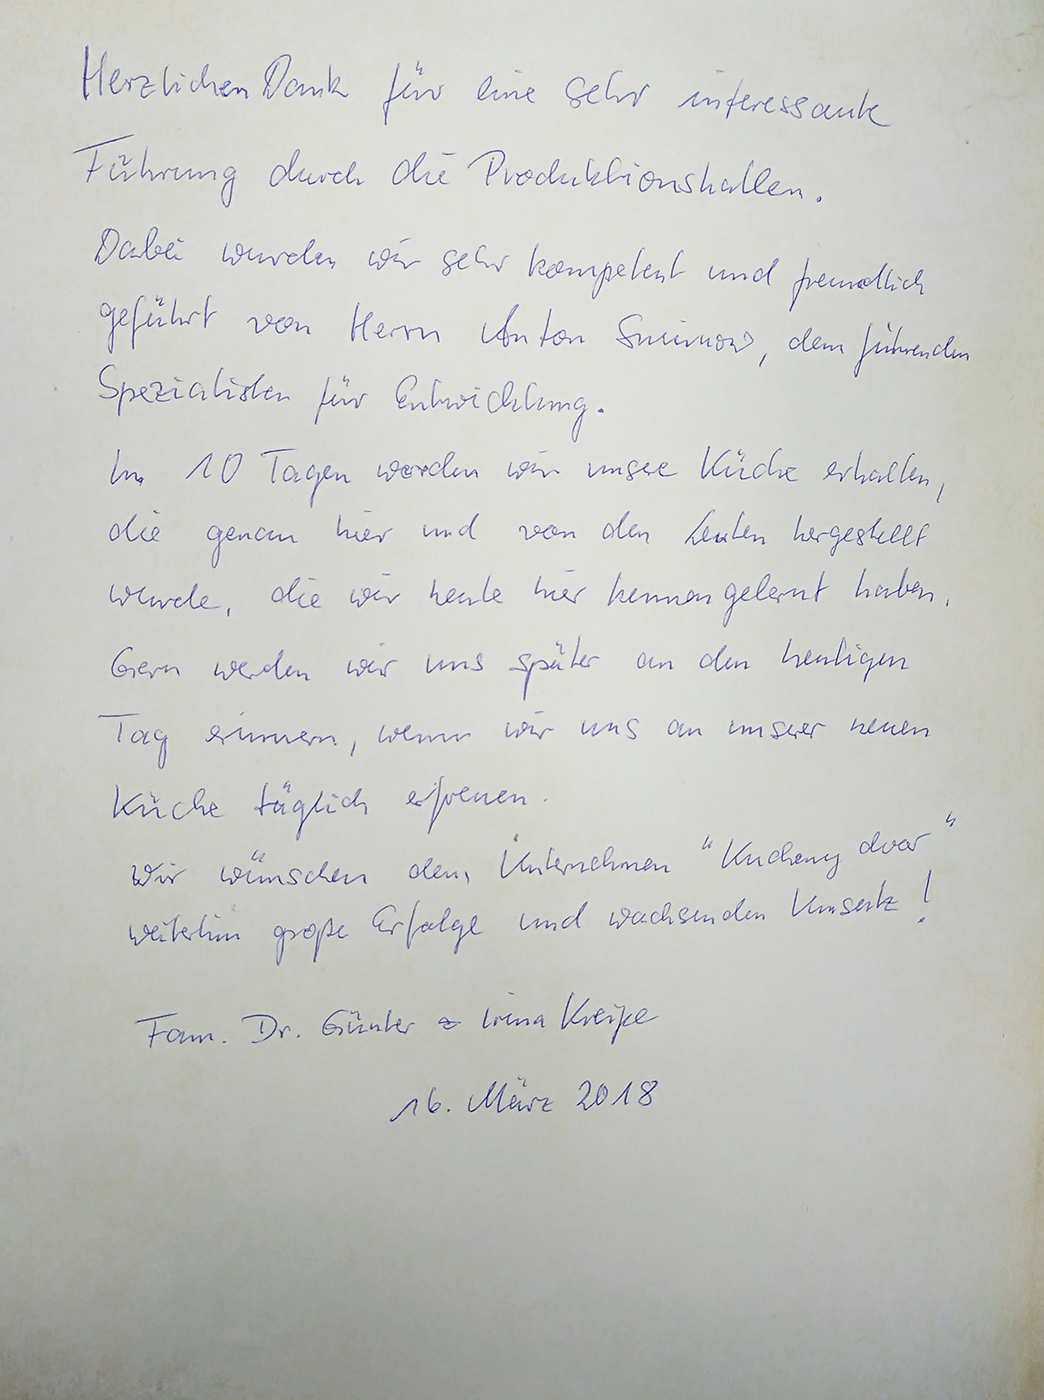 Herzlichen Dank für eine sehr interessante
Führung durch die Produktionshallen.
Dabei wurden wir sehr kompetent und freundlich
geführt von Herrn Anton Smirnow, dem führenden
Spezialisten für Entwicklung.
In 10 Tagen werden wir unsere Küche erhalten,
die genau hier und von den Leuten hergestellt
wurde, die wir heute hier kennengelernt haben.
Gern werden wir uns später an den heutigen
Tag erinnern, wenn wir uns an unserer neuen
Küche täglich erfreuen.
Wir wünschen dem Unternehmen "Kucheny dvor"
weiterhin große Erfolge und wachsenden Umsatz!
Fam. Dr. Günter & Irina Kreipe
16. März 2018